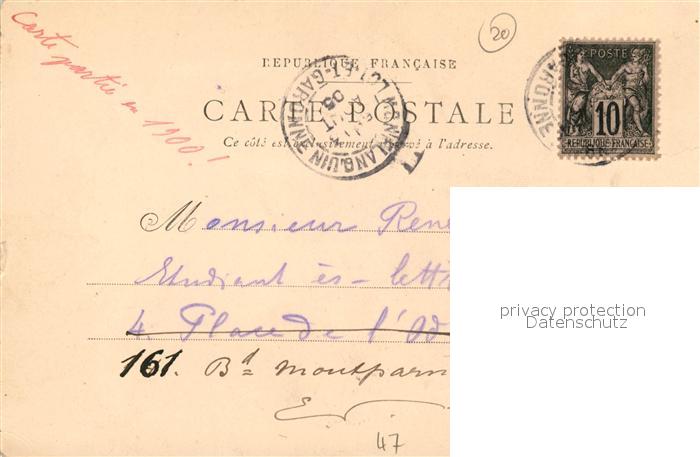 Carte partie en 1900!
20
REPUBLIQUE FRANÇAISE
CARTE POSTALE
Ce côté est exclusivement réservé à l'adresse.
MONFLANQUIN
LOT-ET-GARONNE
POSTE
10
REPUBLIQUE FRANÇAISE
GARONNE
Monsieur René
Etudiant ès-lett
4. Place de l'Od
161. Bd Montparn
47
privacy protection
Datenschutz